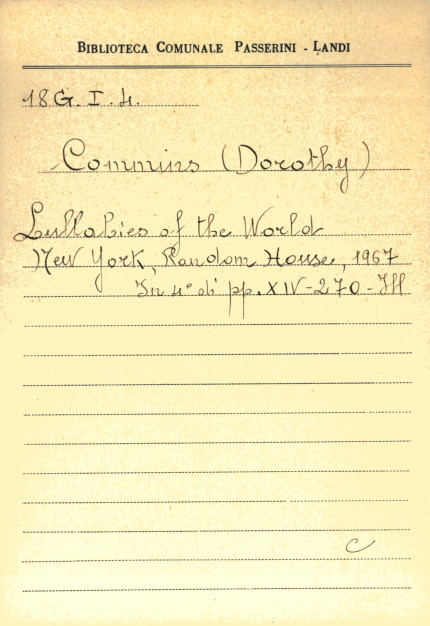 BIBLIOTECA COMUNALE PASSERINI - LANDI
18 G. I. 4.
Commins (Dorothy)
Lullabies of the World
New York, Random House, 1967
In 4° di pp. XIV-270-Ill
C